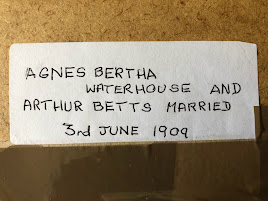 AGNES BERTHA
WATERHOUSE AND
ARTHUR BETTS MARRIED
3rd JUNE 1909